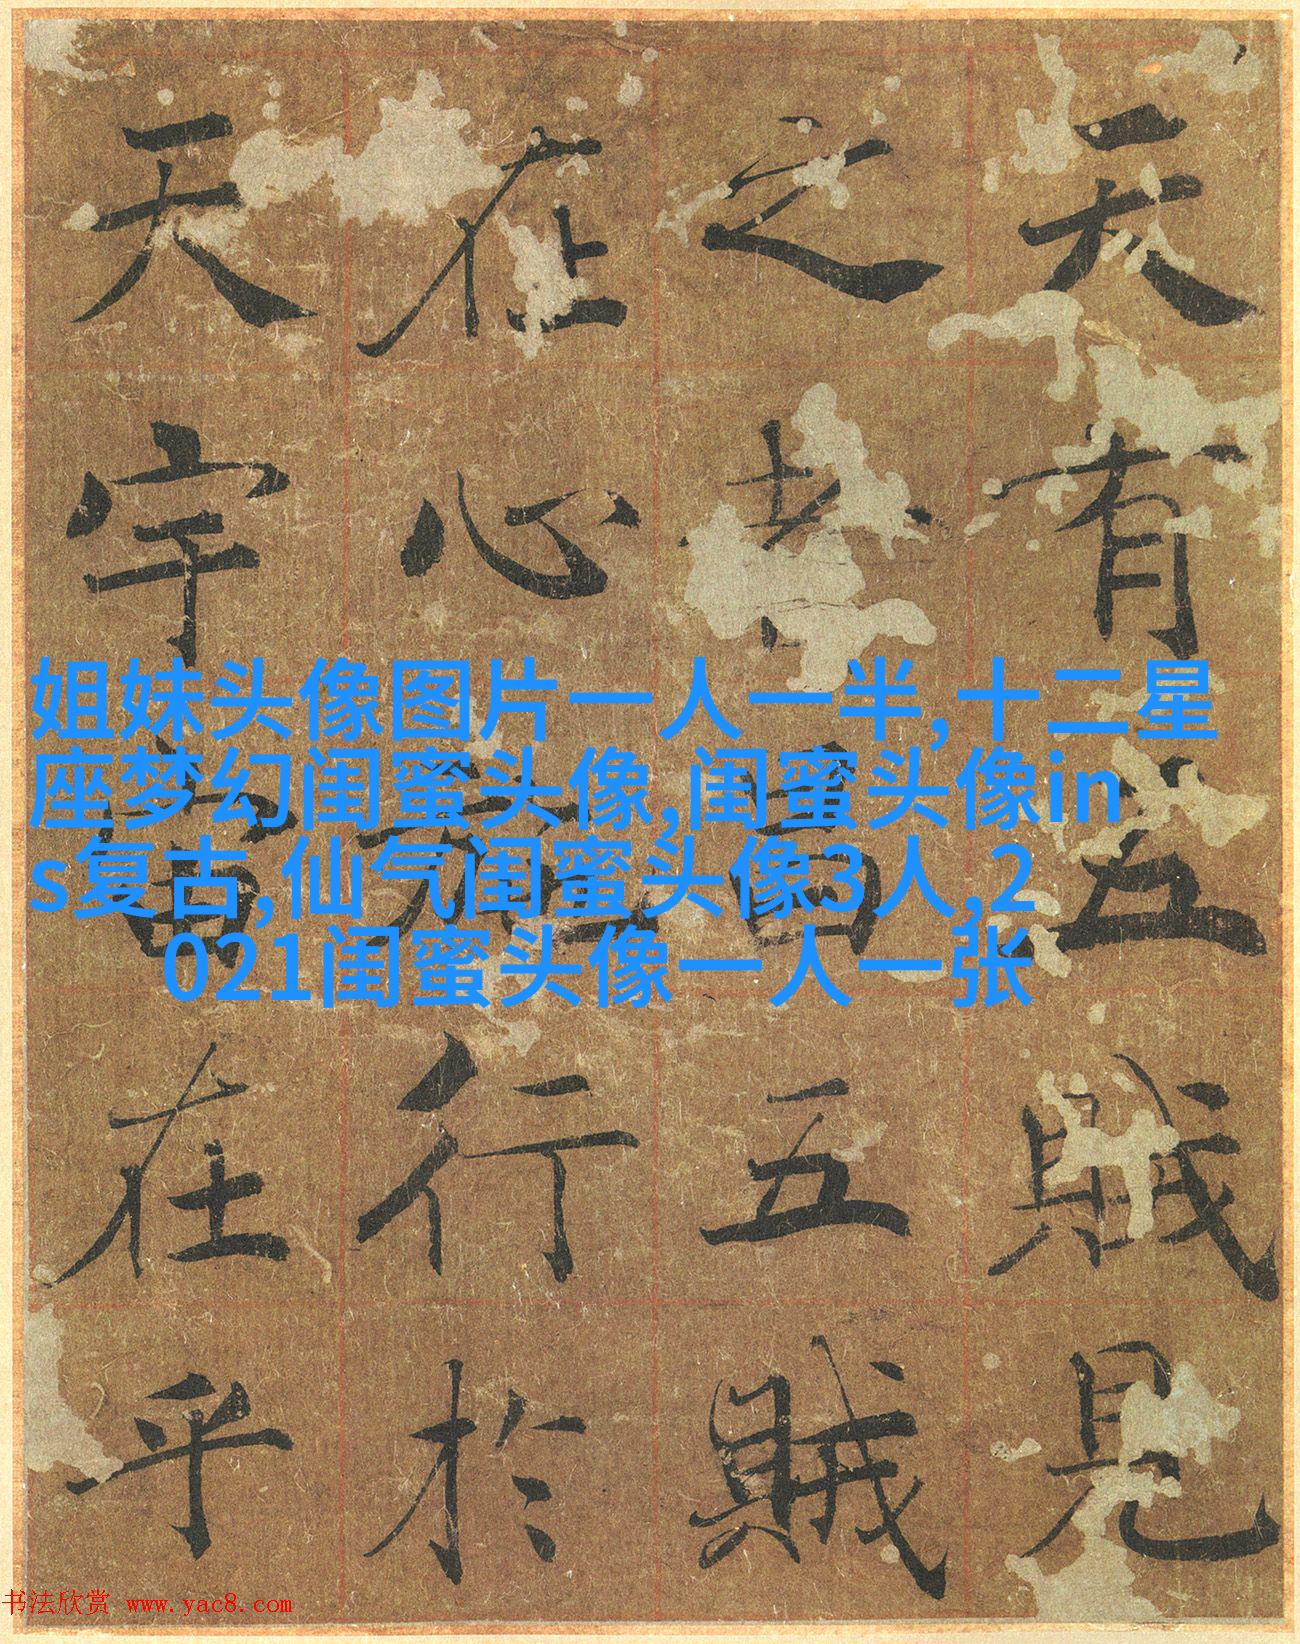 天有五賊見
之者昌五賊
在心施行於
天宇宙在乎
姐妹头像图片一人一半,十二星
座梦幻闺蜜头像,闺蜜头像in
s复古,仙气闺蜜头像3人,2
021闺蜜头像一人一张
书法欣赏 www.yac8.com